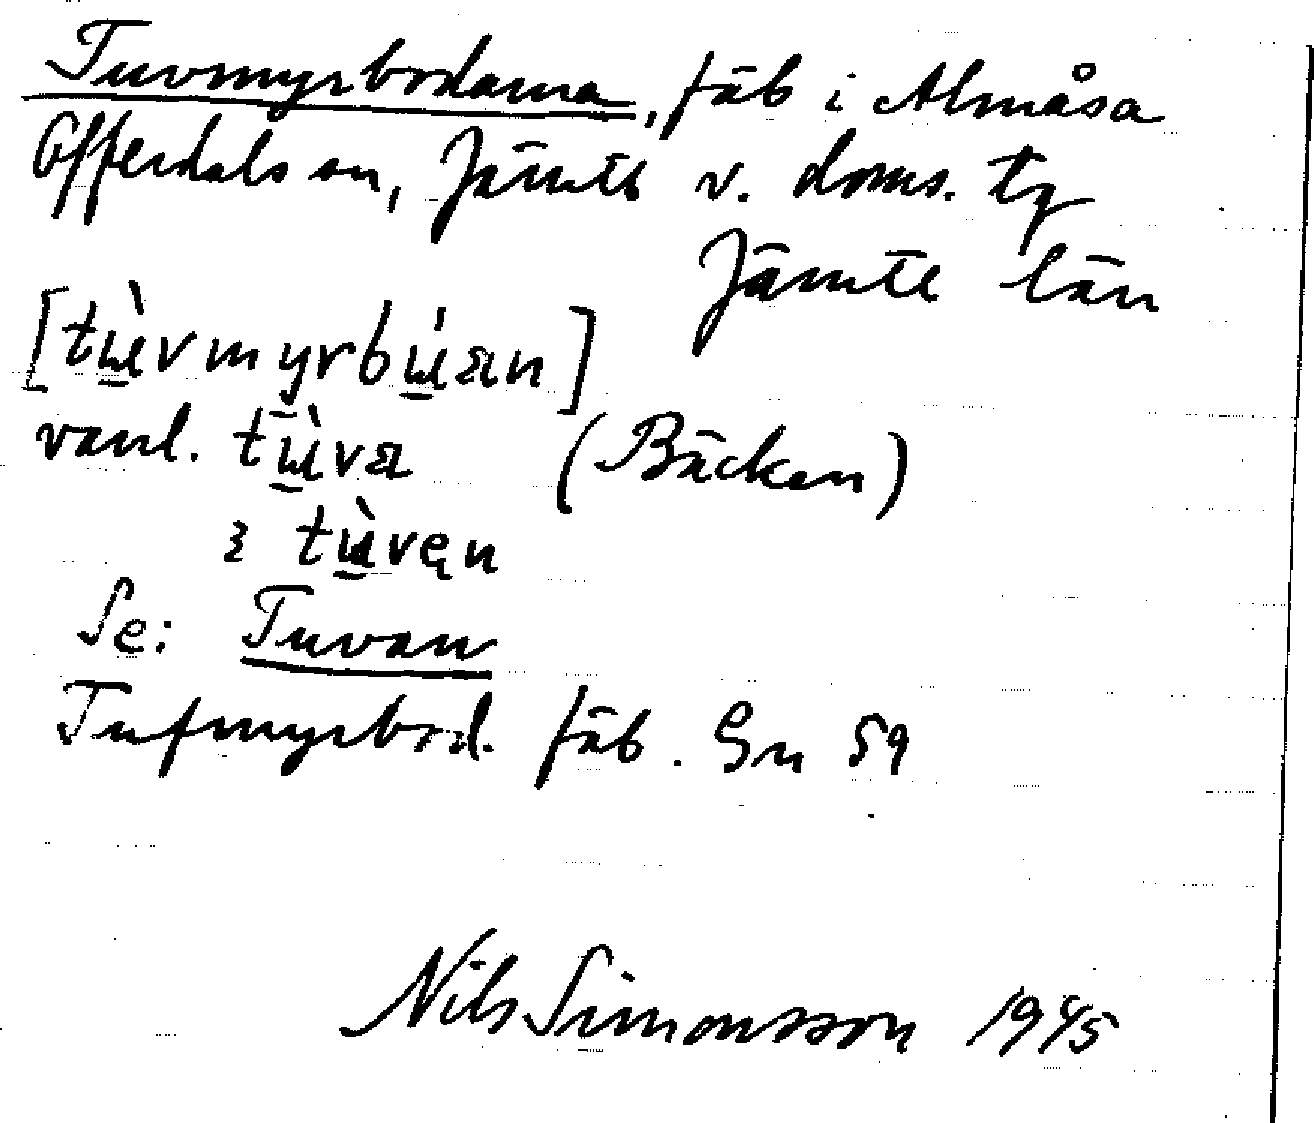 Tuvmyrbodarna, fäb i Almåsa
Offerdals sn, Jämtl v. doms. tg
Jämtl län
[tɯ̀vmyrbɯ́an]
vanl. tɯ̀va (Bäcken)
tɯ̀vęn
Se: Tuvan
Tufmyrbod. fäb. Gn 59
Nils Simonsson 1945